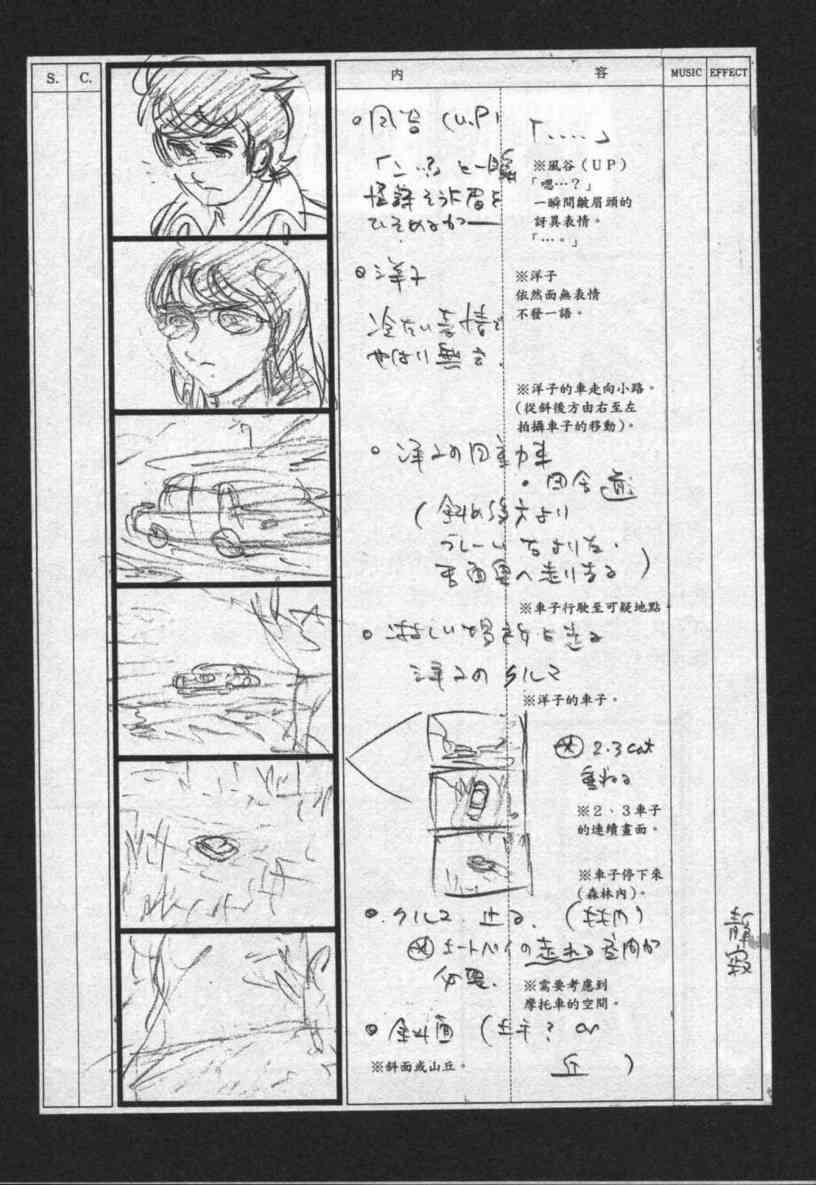 S. C. 内 容 MUSIC EFFECT
風谷 (U.P)
「.....」
※風谷（UP）
「嗯…？」
一瞬間皺眉頭的
訝異表情。
「…。」
怪訝そうに眉を
ひそめるが—
洋子
※洋子
依然面無表情
不發一語。
冷たい表情で
やはり無言.
※洋子的車走向小路。
(從斜後方由右至左
拍攝車子的移動)。
洋子の自動車
・田舎道
(斜め後方より
右より左.
画面奥へ走り去る)
※車子行駛至可疑地點。
淋しい場所に走る
洋子のクルマ
※洋子的車子。
2.3 cut
重ねる
※2、3車子
的連續畫面。
※車子停下來
(森林內)。
クルマ 止る. (林内)
静寂
オートバイの走れる空間が
必要.
※需要考慮到
摩托車的空間。
斜面 (土手? or
丘)
※斜面或山丘。